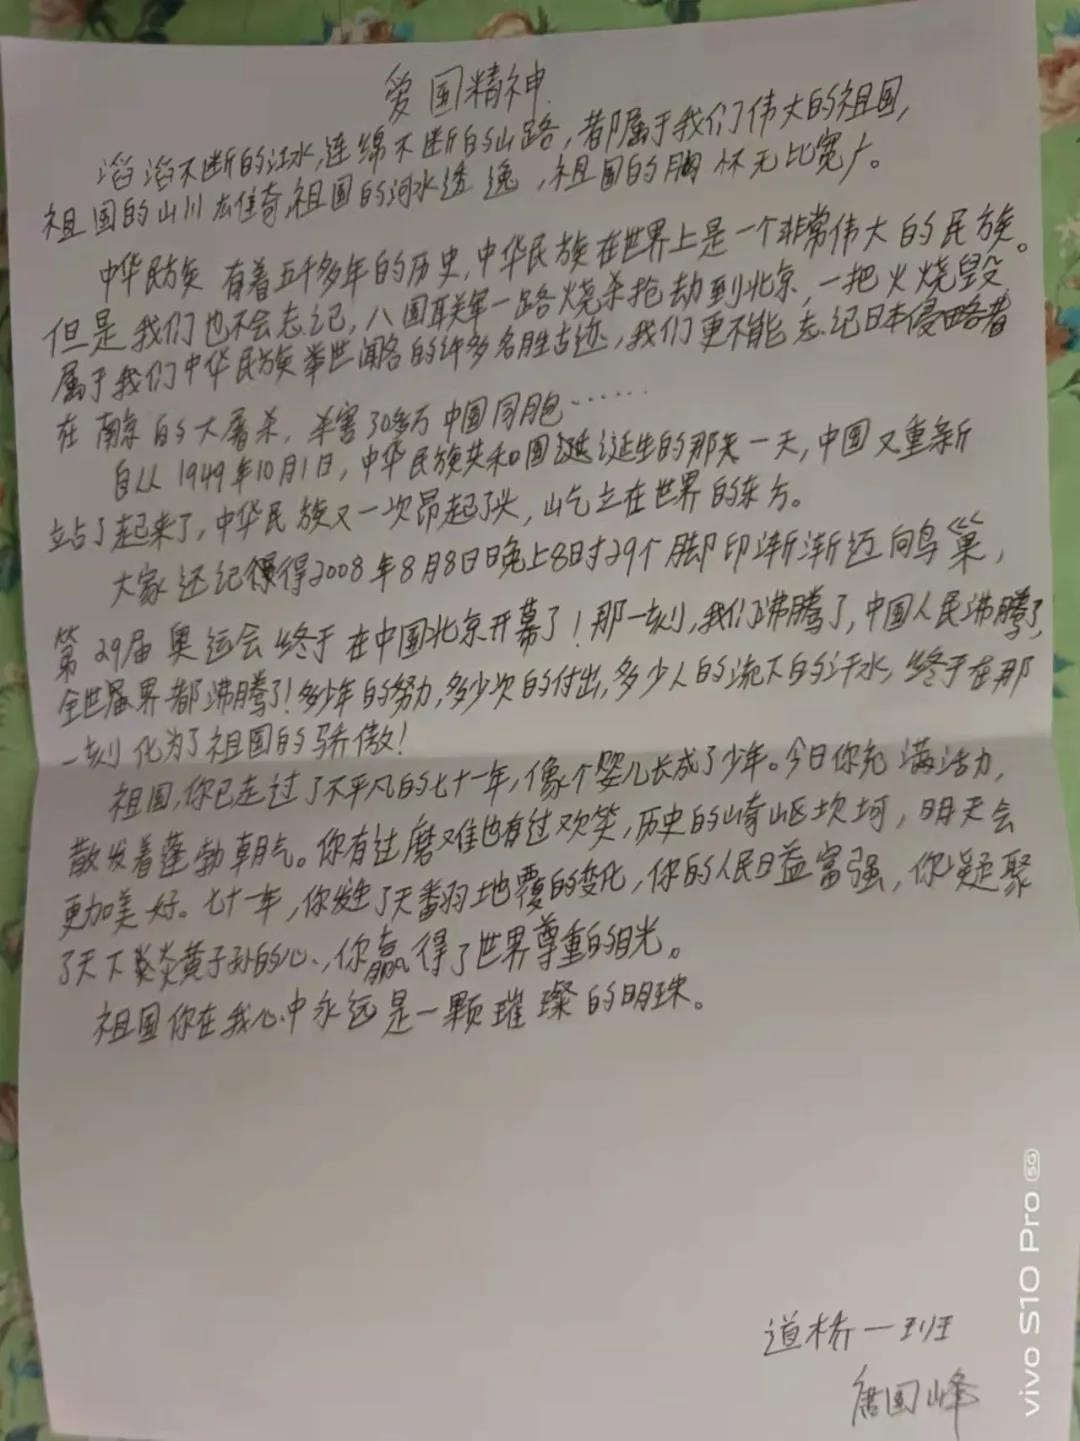 爱国精神
滔滔不断的江水,连绵不断的山路,都属于我们伟大的祖国,
祖国的山川雄奇,祖国的河水透逸,祖国的胸怀无比宽广。
中华民族有着五千多年的历史,中华民族在世界上是一个非常伟大的民族。
但是我们也不会忘记,八国联军一路烧杀抢劫到北京,一把火烧毁
属于我们中华民族举世闻名的许多名胜古迹,我们更不能忘记日本侵略者
在南京的大屠杀,杀害30多万中国同胞……
自从1949年10月1日,中华民族共和国诞生的那一天,中国又重新
站了起来了,中华民族又一次昂起了头,屹立在世界的东方。
大家还记得2008年8月8日晚上8时29个脚印渐渐迈向鸟巢,
第29届奥运会终于在中国北京开幕了!那一刻,我们沸腾了,中国人民沸腾了,
全世界都沸腾了!多少年的努力,多少次的付出,多少人的流下的汗水,终于在那
一刻化为了祖国的骄傲!
祖国,你已走过了不平凡的七十一年,像个婴儿长成了少年。今日你充满活力,
散发着蓬勃朝气。你有过磨难也有过欢笑,历史的崎岖坎坷,明天会
更加美好。七十一年,你发生了天翻地覆的变化,你的人民日益富强,你凝聚
了天下炎黄子孙的心,你赢得了世界尊重的目光。
祖国你在我心中永远是一颗璀璨的明珠。
道桥一班
唐国峰
vivo S10 Pro 5G